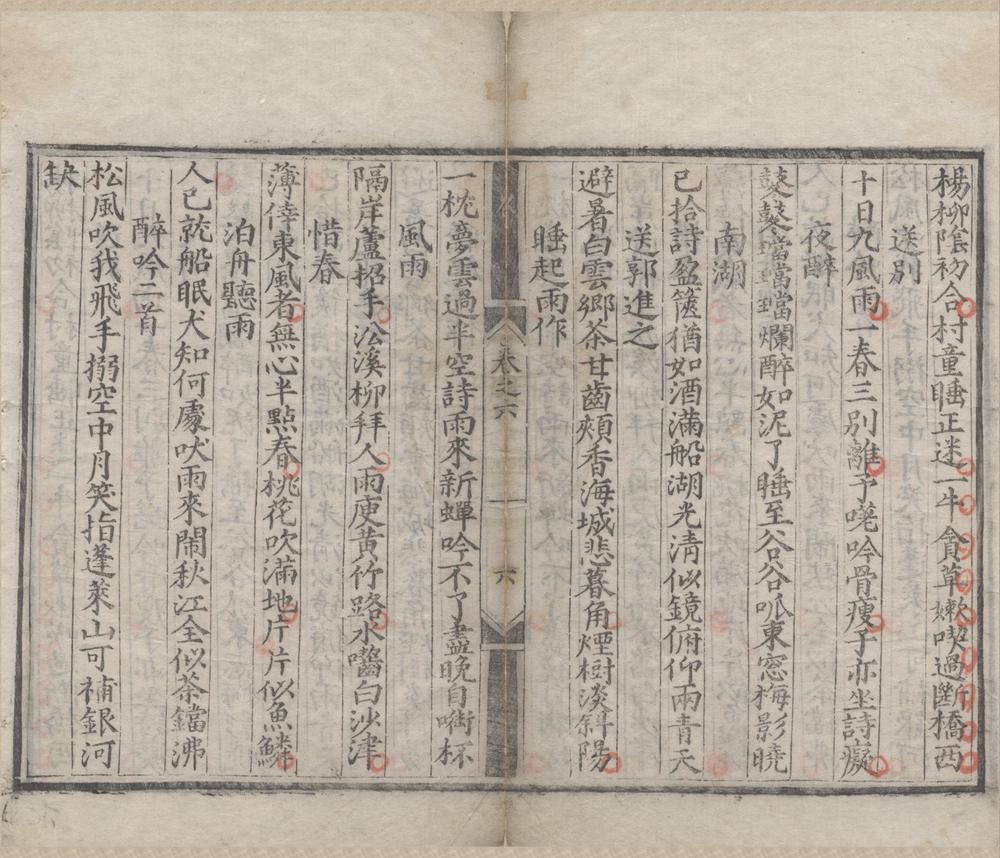 楊柳陰初合村童睡正迷一牛貪草嫩喫過斷橋西
送別
十日九風雨一春三別離予嘵吟骨瘦子亦坐詩癡
夜醉
鼕鼕噹噹噹爛醉如泥了睡至谷谷呱東窓梅影曉
南湖
已拾詩盈篋猶如酒滿船湖光清似鏡俯仰兩青天
送郭進之
避暑白雲鄉茶甘齒頰香海城悲暮角煙樹淡斜陽
睡起雨作
卷之六
六
一枕夢雲過半空詩雨來新蟬吟不了盡晚自啣杯
風雨
隔岸蘆招手沿溪柳拜人雨庾黃竹路水嚙白沙津
惜春
薄倖東風者無心半點春桃花吹滿地片片似魚鱗
泊舟聽雨
人已就船眠犬知何處吠雨來鬧秋江全似茶鐺沸
醉吟二首
松風吹我飛手搦空中月笑指蓬萊山可補銀河
缺